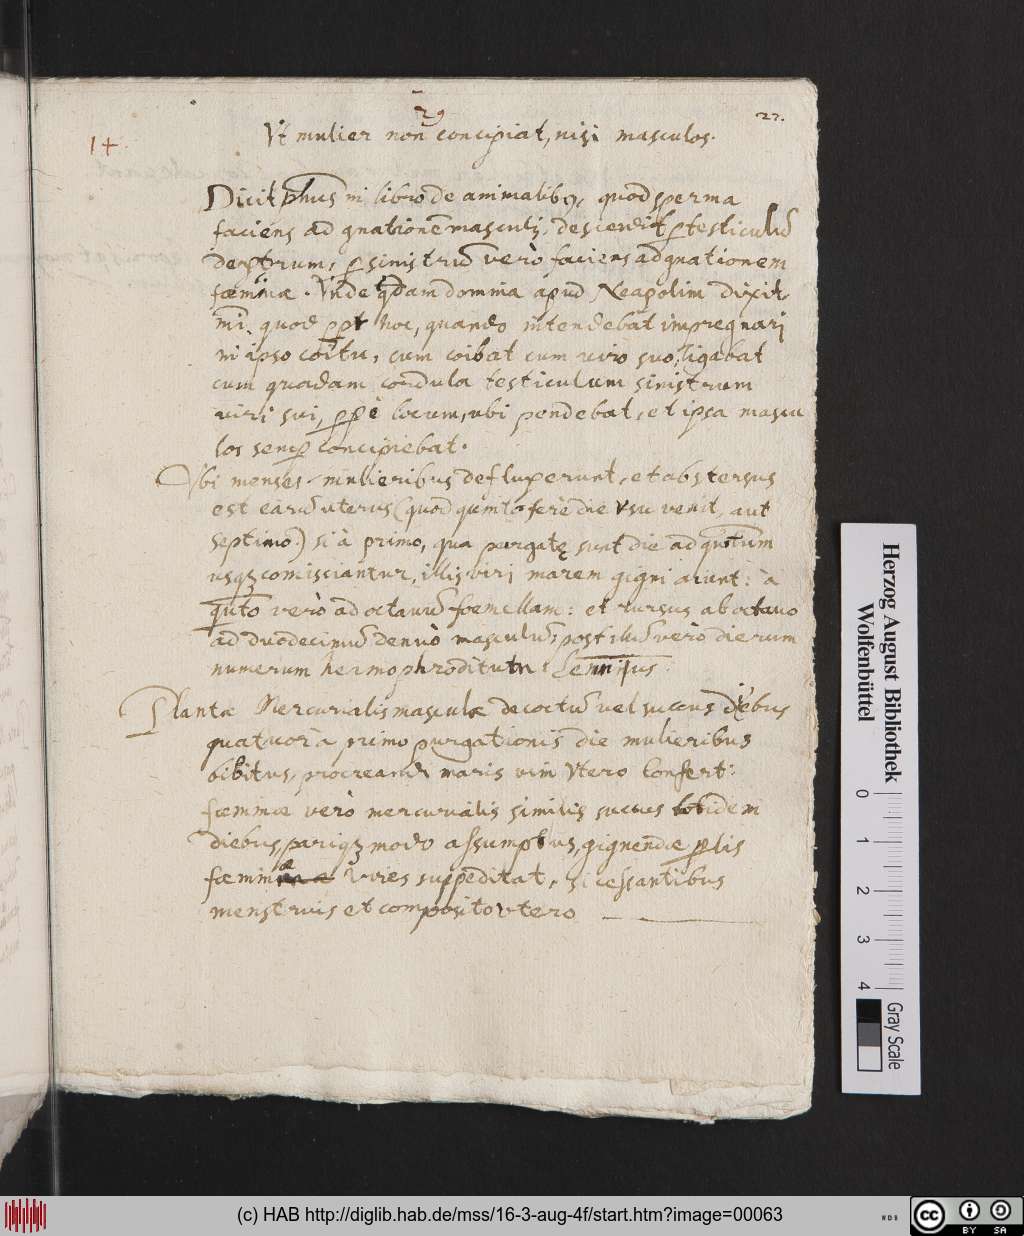 29
27.
14.
Ut mulier non concipiat, nisi masculos.
Dicit phus in libro de animalibq, quod sperma
faciens ad gnationē masculi, descendit p testiculū
dextrum, p sinistrū verò faciens ad gnationem
fœminæ. Unde qdam domina apud Neapolim dixit
mi, quod ppt hoc, quando intendebat impregnari
in ipso coitu, cum coibat cum viro suo, ligabat
cum quadam cordula testiculum sinistrum
viri sui, ppè locum, ubi pendebat, et ipsa mascu
los semp concipiebat.
Ubi menses mulieribus defluxerunt, et abstersus
est earū uterus (quod quinto ferè die usu venit, aut
septimo) si à primo, qua purgatę sunt die ad quītum
usqꝫ comisciantur, illis viri marem gigni aiunt: à
quīto verò ad octavū foemellam: et rursus ab octavo
ad duodecimū denuò masculū, post illū verò dierum
numerum hermophroditum: Lemnius.
Plantæ Mercurialis masculæ decoctū vel succus diebus
quatuor à primo purgationis die mulieribus
bibitus, procreandi maris vim Utero confert:
fœminæ verò mercurialis similis succus totidem
diebus, pariqꝫ modo assumptus, gignendæ plis
fœmineæ vires suppeditat, si cessantibus
menstruis et composito utero
Herzog August Bibliothek
Wolfenbüttel
0 1 2 3 4
Gray Scale
(c) HAB http://diglib.hab.de/mss/16-3-aug-4f/start.htm?image=00063
WDB
cc BY SA